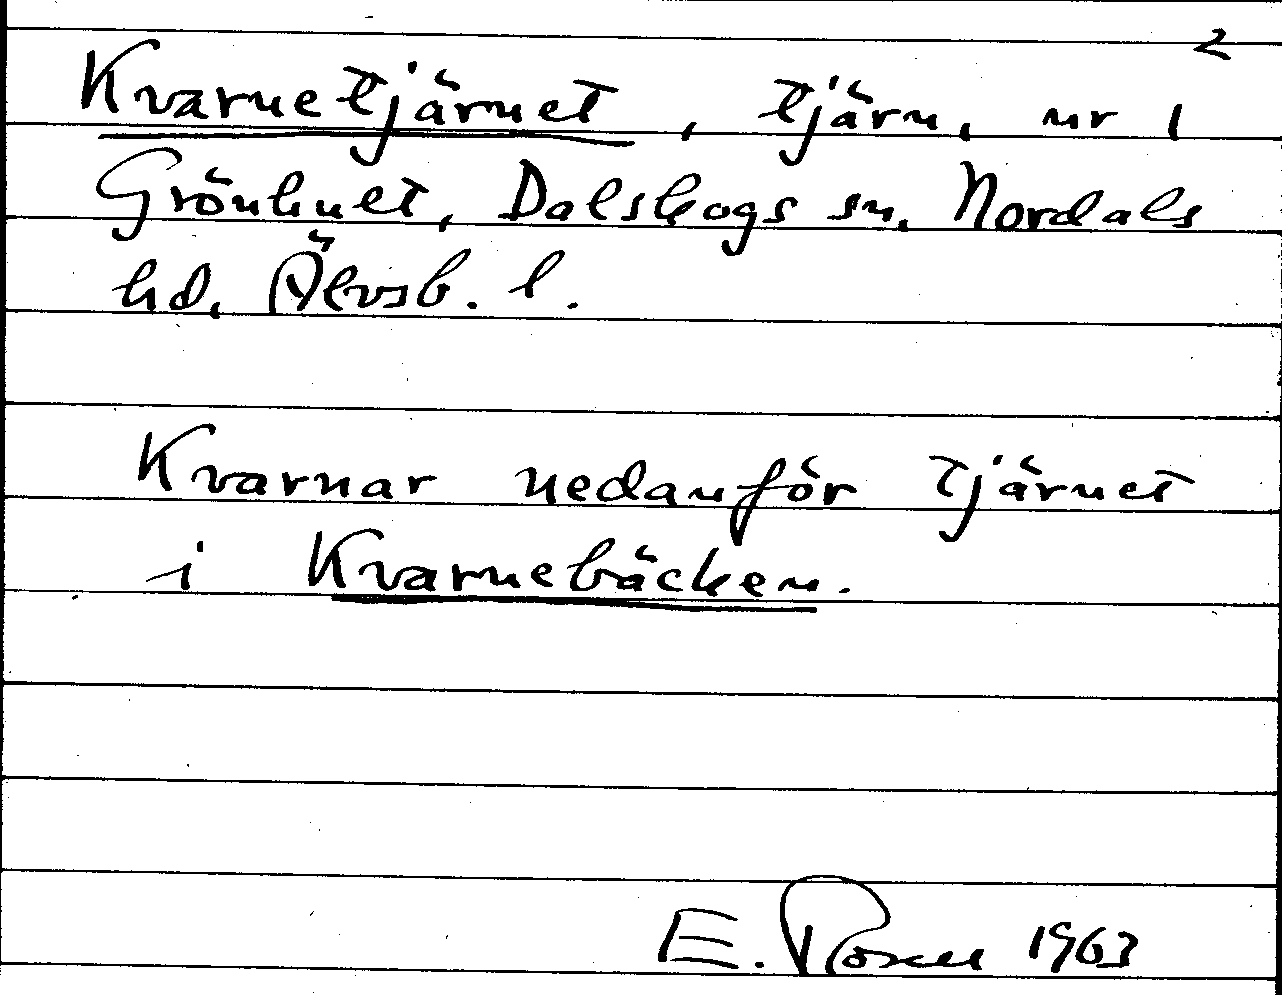 2
Kvarnetjärnet, tjärn, nr 1
Grönhult, Dalskogs sn, Nordals
hd, Älvsb. l.
Kvarnar nedanför tjärnet
i Kvarnebäcken.
E. Rosell 1963